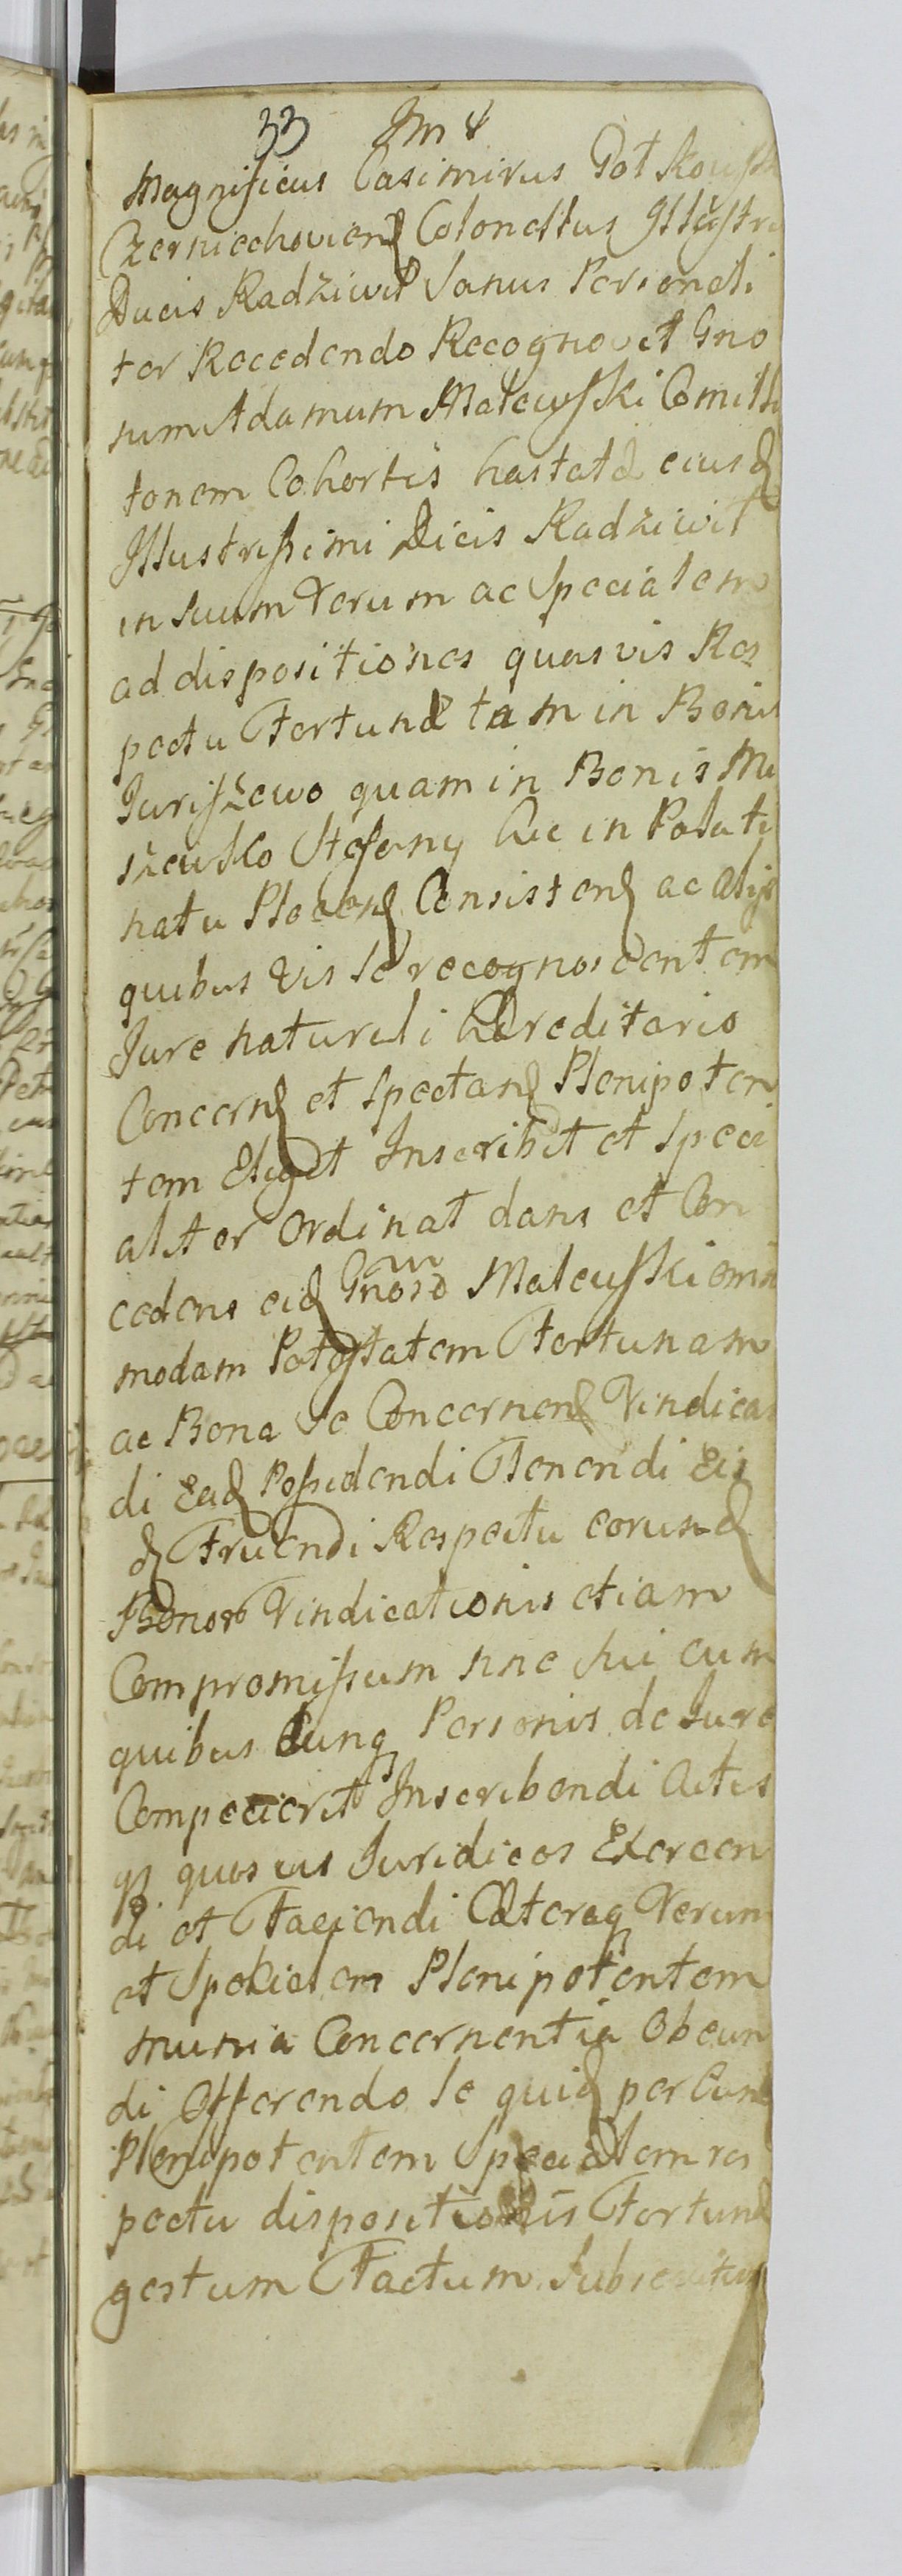 33 Im 8
Magnificus Casimirus Got Kouski
Czerniechoviens Colonellus Illustri
Ducis Radziwił Sanus Personali
ter Recedendo Recognovit Gno
sum Adamum Malewski Comili
tonem Cohortis hastatæ eiusd
Illustrissimi Dicis Radziwił
in Suum Verum ac Specialem
ad dispositiones quasvis Res
pectu Fortunæ tam in Bonis
Juriszewo quam in Bonis Mi
szewko Stefany huc in Palati
natu Plocens Consistend ac alijs
quibus vis Se recognoscentem
Jure naturali hæreditario
Concern et Spectan Plenipoten
tem Elegit Inscribit et Speci
aliter Ordinat dans et Con
cedens eid Gnoso Malewski omni
modam Potestatem Fortunam
ac Bona Se Concernen Vindican
di Ead Possidendi Tenendi Eis
d Fruendi Respectu eorund
Bonor Vindicationis etiam
Compromissum nne Sui cum
quibus Cunq Personis de Jure
Competierit Inscribendi Actus
q quosvis Juridicos Exercen
di et Faciendi Cæteraq Verum
et Specialem Plenipotentem
munia Concernentia Obeun
di Offerendo Se quid per Eund
Plenipotentem Specialem res
pectu dispositionis Fortunæ
gestum Factum